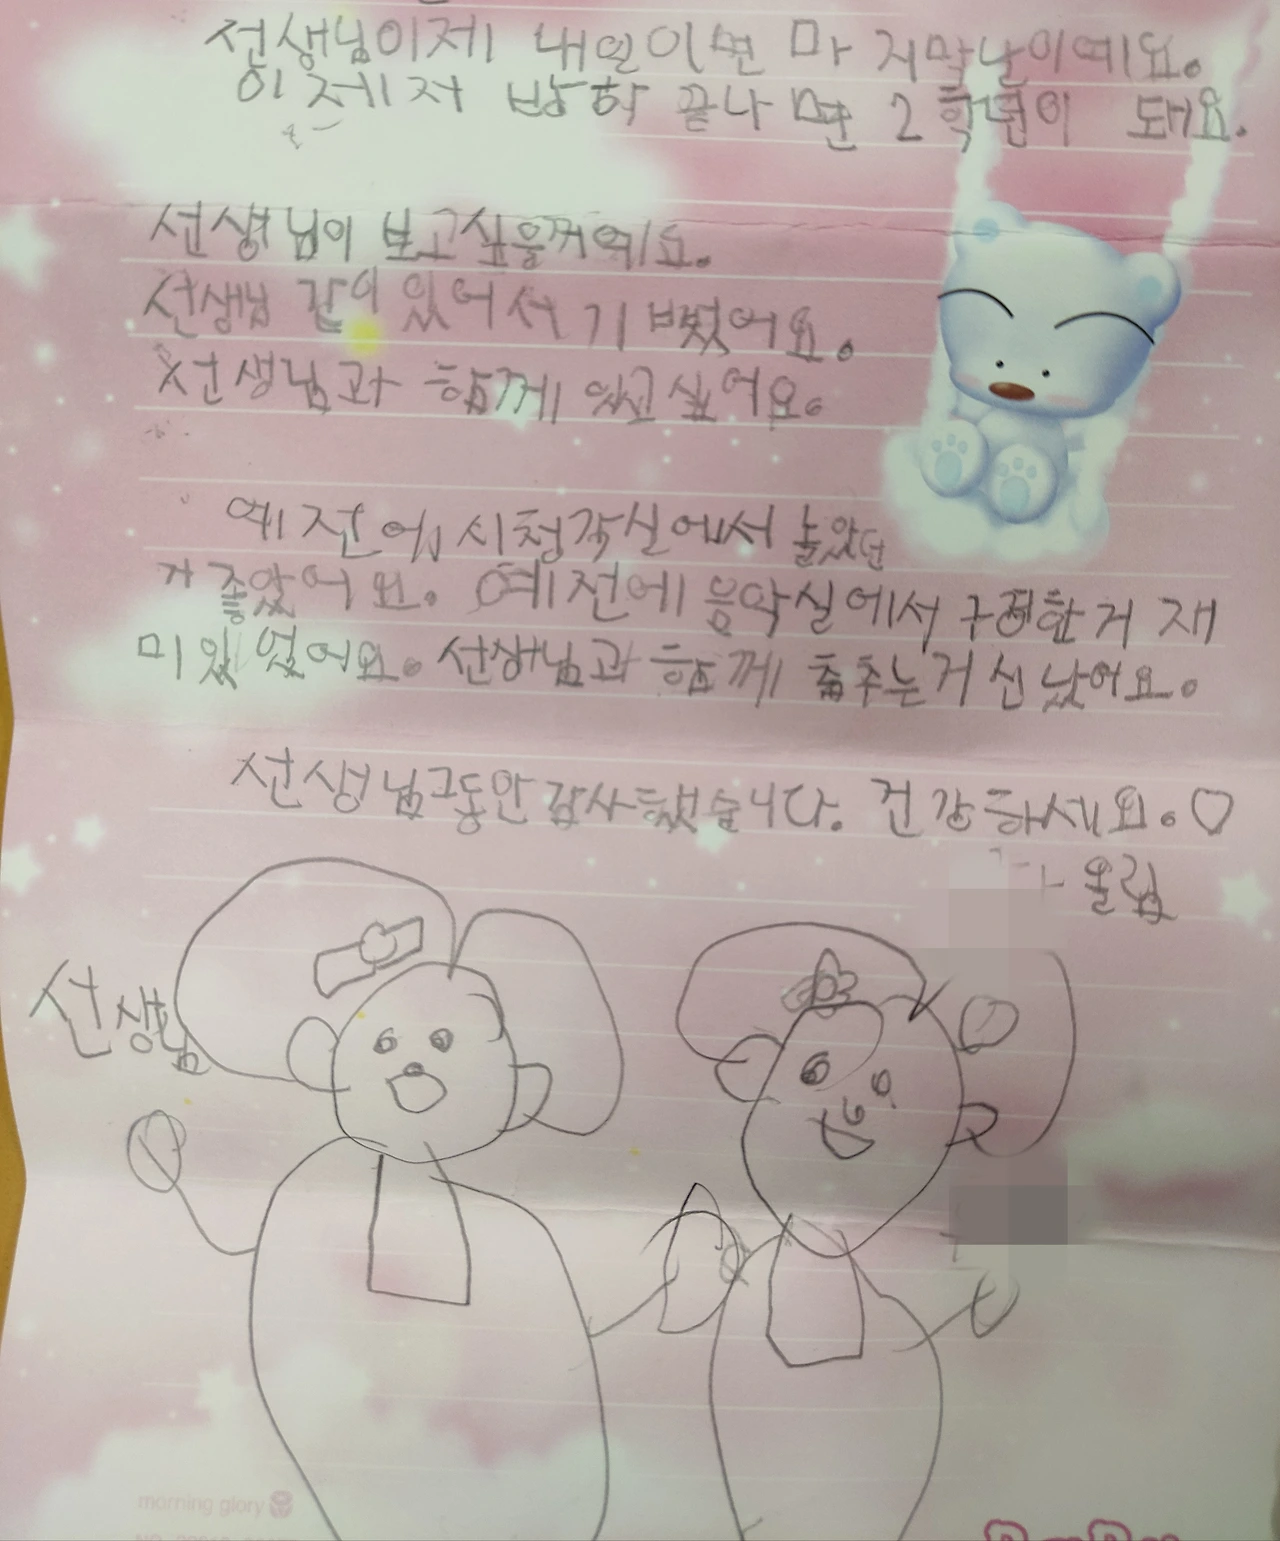 선생님이제 내일이면 마 지막날이예요.
이제저 방학 끝나 면 2학년이 돼요.
선생님이 보고싶을꺼예요.
선생님 같이있어서 기뻤어요.
선생님과 함께 있고싶어요.
예전에 시청각실에서 놀았던
거 좋았어요. 예전에 음악실에서 구경한거 재
미있었어요. 선생님과 함께 춤추는거 신났어요.
선생님그동안 감사했습니다. 건강하세요.♡
올림
선생님
morning glory